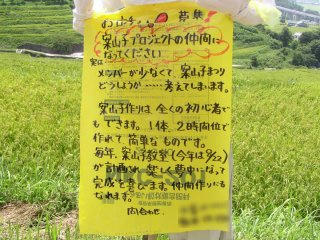 募集
案山子プロジェクトの仲間に
なってください
実は
メンバーが少なくて、案山子まつり
どうしようか……考えてしまいます。
案山子作りは全くの初心者で
もできます。1体、2時間位で
作れて簡単なものです。
毎年、案山子教室(今年は9/22)
が計画され、楽しく夢中になって
完成を喜びます。仲間作りにも
なれます。
問合わせ